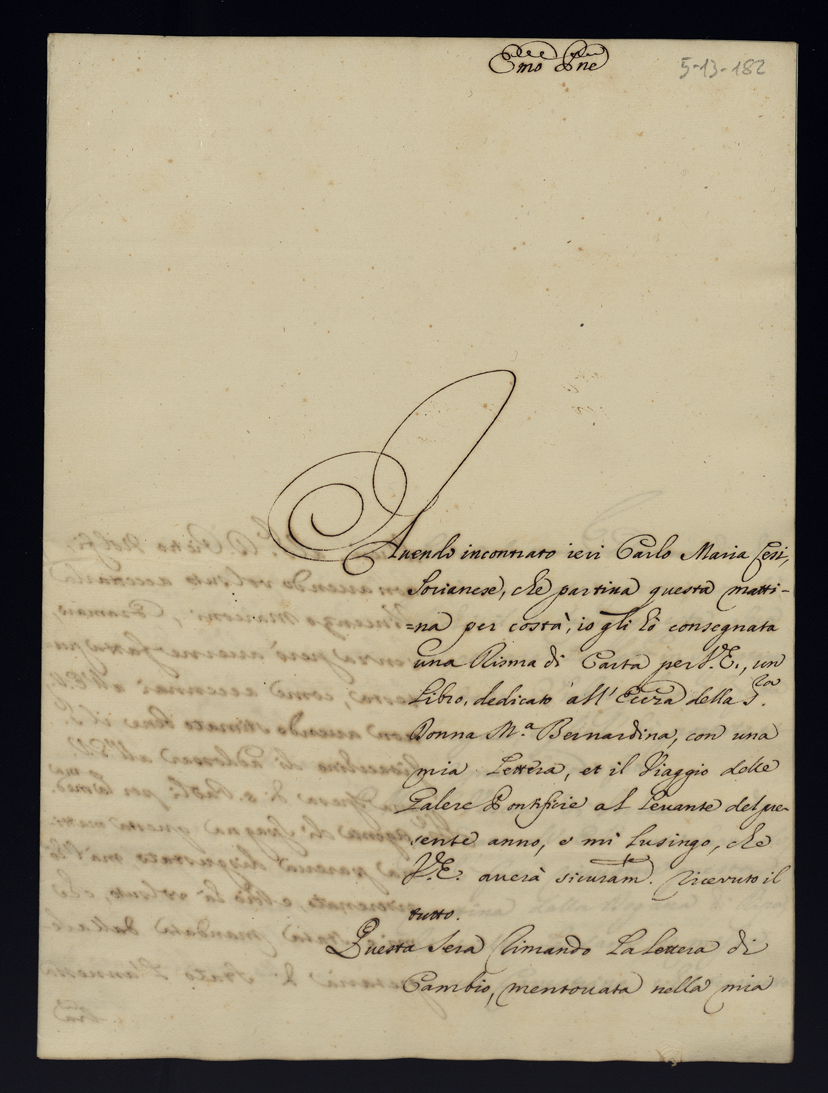 Emo Pne
5-13-182
Avendo incontrato ieri Carlo Maria Cesi,
Sorianese, che partiva questa matti-
=na per costà, io gli hò consegnata
una Risma di Carta per V.E., un
Libro, dedicato all' Eccza della Sra
Donna Mª Bernardina, con una
mia Lettera, et il Viaggio delle
Galere Pontificie al Levante del pre-
sente anno, e mi lusingo, che
V.E. averà sicuramte ricevuto il
tutto.
Questa sera rimando la lettera di
Cambio, mentovata nella mia